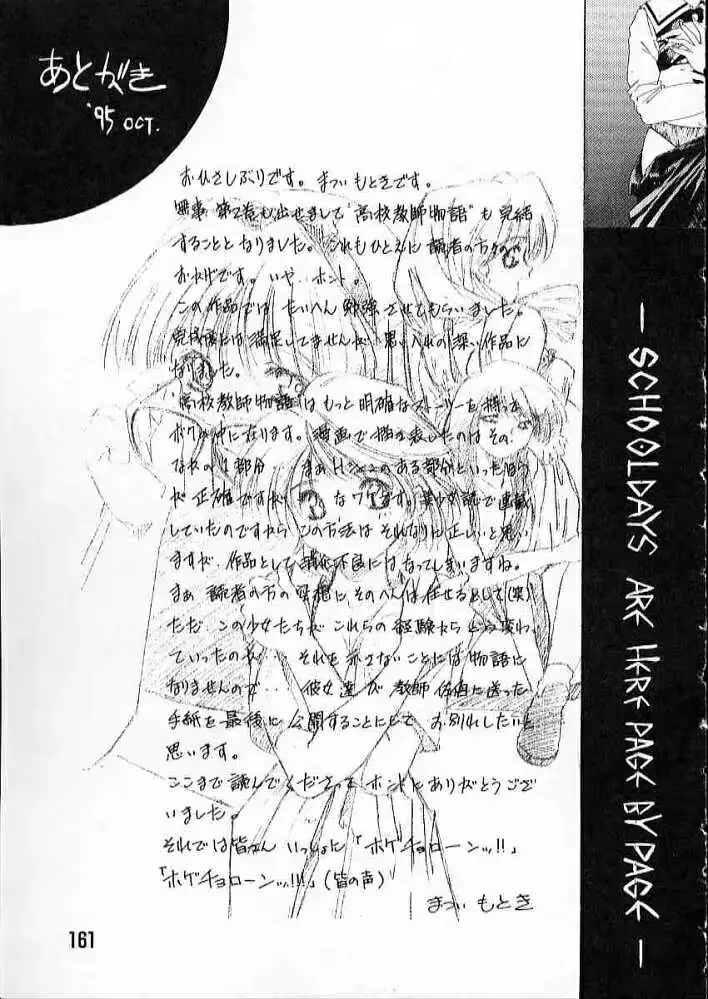 あとがき
'95 OCT.
お久さしぶりです。まついもときです。
無事 第2巻も出せまして"高校教師物語"も完結
することとなりました。これもひとえに読者の方々の
おかげです。いや‥ホント。
この作品では たいへん勉強させてもらいました。
には満足してませんが、思い入れの深い作品に
なりました。
"高校教師物語"はもっと明確なストーリーを持って
ボクの中にあります。漫画で描き表したのはその、
なかの1部分‥ まぁHシーンのある部分といった方
が正確ですが なワケです。美少女誌で連載
していたのですから この方法は それなりに正しいと思い
ますが、作品として消化不良にはなってしまいますね。
まぁ 読者の方の に、そのへんは任せるとして(笑)
ただ、この少女たちが これらの経験から どう変わ
っていったのか‥ それを示さないことには物語に
なりませんので‥ 彼女達が 教師 に送った
手紙を最後に公開することにして お別れしたいと
思います。
ここまで読んでくださって ホントにありがとうござ
いました。
それでは皆さん いっしょに「ホゲチョローンッ!!」
「ホゲチョローンッ!!!」(皆の声)
まつい もとき
161
— SCHOOLDAYS ARE HERE PAGE BY PAGE —